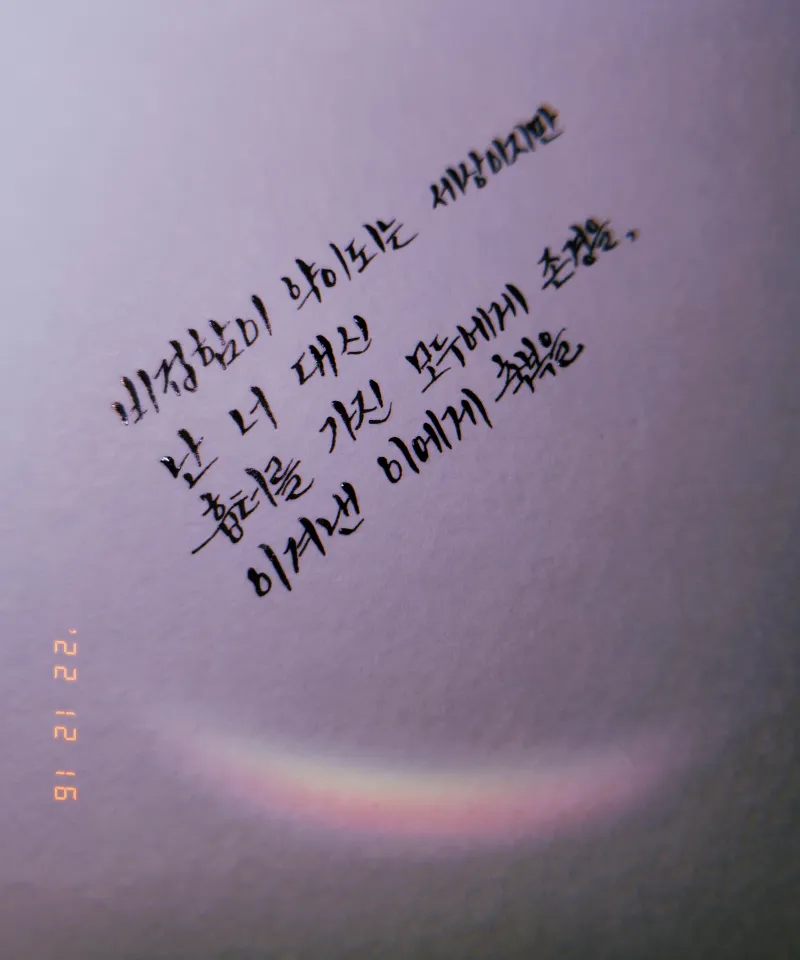 비정함이 약이되는 세상이지만
난 너 대신
흉터를 가진 모두에게 존경을,
이겨낸 이에게 축복을
'22 12 16